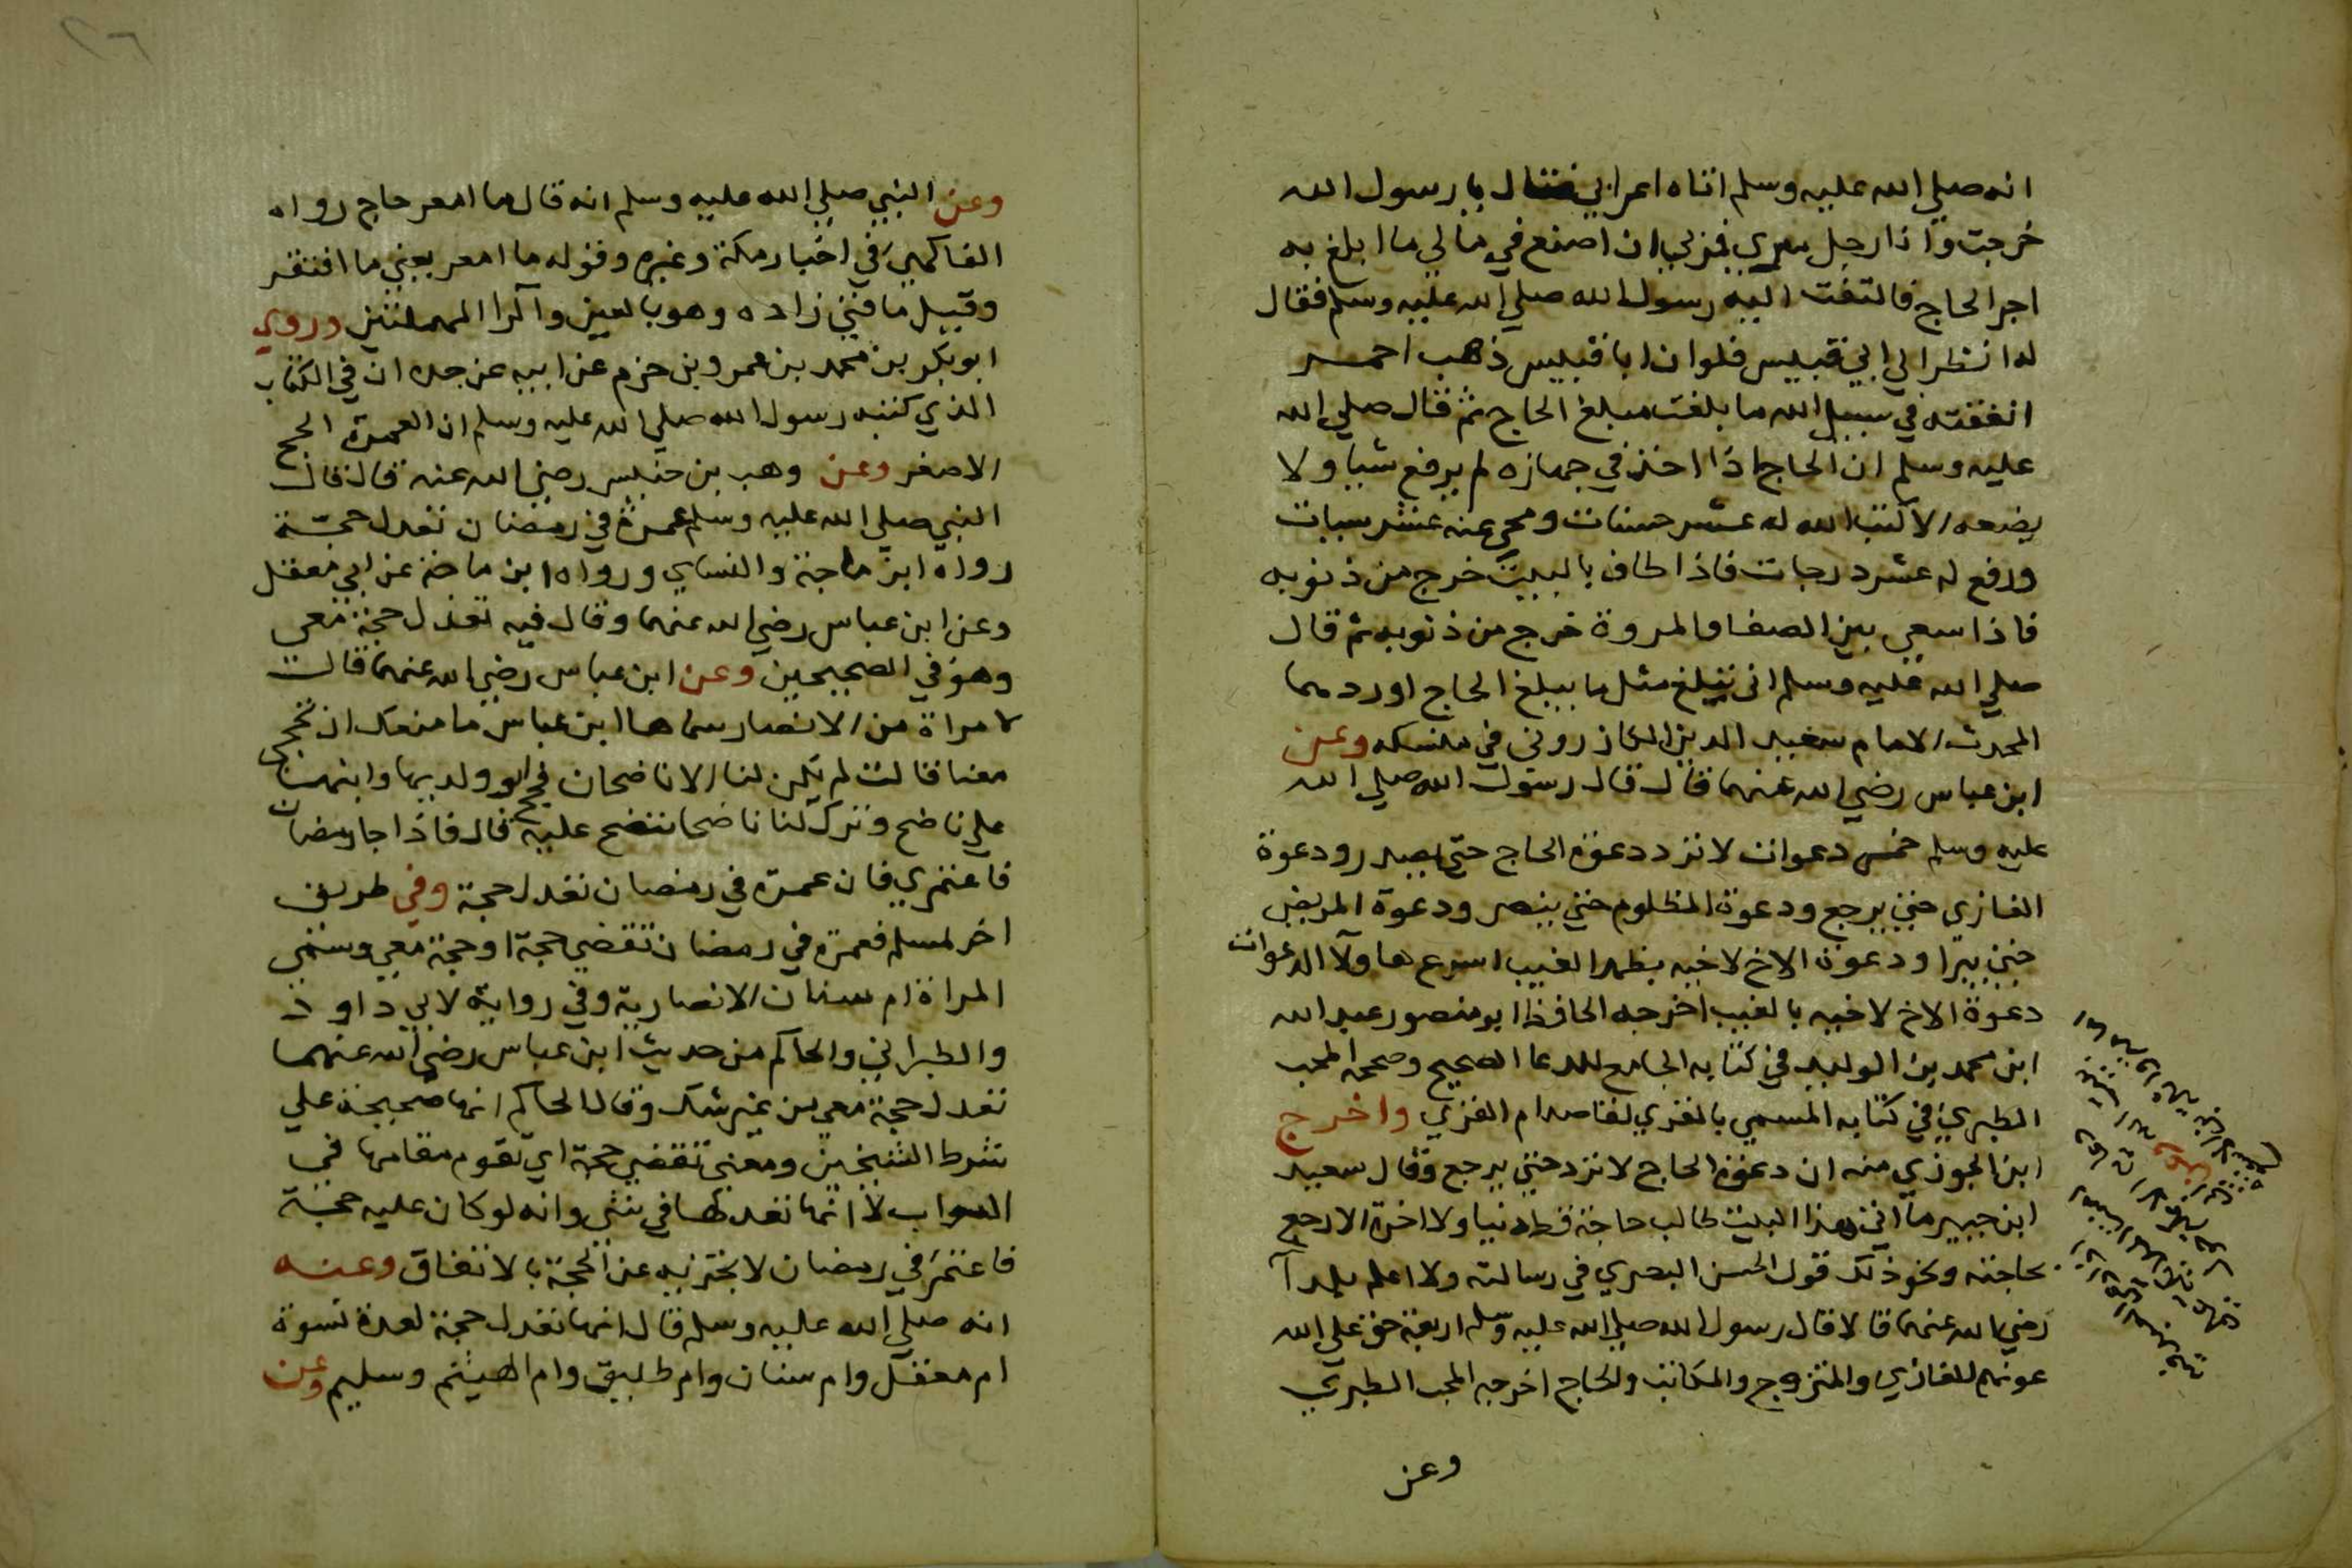 انه صلي الله عليه وسلم اتاه اعرابي فقال يا رسول الله
خرجت واذا رجل فمزلي ان اصنع في مالي ما ابلغ به
اجر الحاج فالتفت اليه رسول الله صلي الله عليه وسلم فقال
له انظر الي ابي قبيس فلو ان ابا قبيس ذهب احمر
انفقته في سبيل الله ما بلغت مبلغ الحاج ثم قال صلي الله
عليه وسلم ان الحاج اذا اخذ في جهازه لم يرفع شيا ولا
يضعه الا كتب الله له عشر حسنات ومحي عنه عشر سيات
ورفع له عشر درجات فاذا طاف بالبيت خرج من ذنوبه
فاذا سعي بين الصفا والمروة خرج من ذنوبه ثم قال
صلي الله عليه وسلم اني تبلغ مثل ما يبلغ الحاج اوردهما
المحدث الامام سعيد الدين الكازروني في منسكه وعن
ابن عباس رضي الله عنهما قال قال رسول الله صلي الله
عليه وسلم خمس دعوات لا ترد دعوة الحاج حتي يصدر ودعوة
الغازي حتي يرجع ودعوة المظلوم حتي ينصر ودعوة المريض
حتي يبرا ودعوة الاخ لاخيه بظهر الغيب اسرع هاولا الدعوات
دعوة الاخ لاخيه بالغيب اخرجه الحافظ ابو منصور عبد الله
ابن محمد بن الوليد في كتابه الجامع للدعا الصحيح وصححه المحب
الطبري في كتابه المسمي بالقري لقاصد ام القري واخرج
ابن الجوزي منه ان دعوة الحاج لا ترد حتي يرجع وقال سعيد
ابن جبير ما اتي هذا البيت طالب حاجة قط دنيا ولا اخرة الا رجع
بحاجته ونحو ذلك قول الحسن البصري في رسالته ولا اعلم بلدا
رضي الله عنهما قالا قال رسول الله صلي الله عليه وسلم اربعة حق علي الله
عونهم الغازي والمتزوج والمكاتب والحاج اخرجه المحب الطبري
وعن
وعن النبي صلي الله عليه وسلم انه قال ما امعر حاج رواه
الفاكهي في اخبار مكة وغيره وقوله ما امعر يعني ما افتقر
وقيل ما فني زاده وهو بالعين والرا المهملتين وروي
ابو بكر بن محمد بن عمرو بن حزم عن ابيه عن جده ان في الكتاب
الذي كتبه رسول الله صلي الله عليه وسلم ان العمرة الحج
الاصغر وعن وهب بن خنبس رضي الله عنه قال قال
النبي صلي الله عليه وسلم عمرة في رمضان تعدل حجة
رواه ابن ماجة والنساي ورواه ابن ماجة عن ابي معقل
وعن ابن عباس رضي الله عنهما وقال فيه تعدل حجة معي
وهو في الصحيحين وعن ابن عباس رضي الله عنهما قالت
لامراة من الانصار سماها ابن عباس ما منعك ان تحجي
معنا قالت لم يكن لنا الا ناضحان فحج ابو ولديها وابنها
علي ناضح وترك لنا ناضحا ننضح عليه قال فاذا جا رمضان
فاعتمري فان عمرة في رمضان تعدل حجة وفي طريق
اخر لمسلم فعمرة في رمضان تقضي حجة او حجة معي وسمي
المراة ام سنان الانصارية وفي رواية لابي داود
والطبراني والحاكم من حديث ابن عباس رضي الله عنهما
تعدل حجة معي من غير شك وقال الحاكم انها صحيحة علي
شرط الشيخين ومعني تقضي حجة اي تقوم مقامها في
الثواب لا انها تعدلها في شي وانه لو كان عليه حجة
فاعتمر في رمضان لا تجزيه عن الحجة بالاتفاق وعنه
انه صلي الله عليه وسلم قال انها تعدل حجة لعدة نسوة
ام معقل وام سنان وام طليق وام الهيثم وسليم وعن